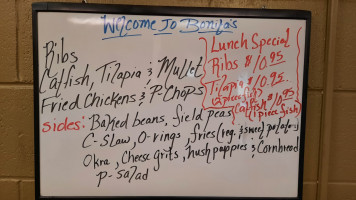 Welcome To Bonito's
Ribs
Catfish, Tilapia & Mullet
Fried Chickens & P-Chops
Lunch Special
Ribs $10.95
Tilapia $10.95
(2 piece fish)
Catfish $10.95
(1 piece fish)
Sides: Baked beans, field peas
C-Slaw, O-rings, fries (reg. & sweet) potato-
Okra, Cheese grits, hush puppies & Cornbread
P-Salad